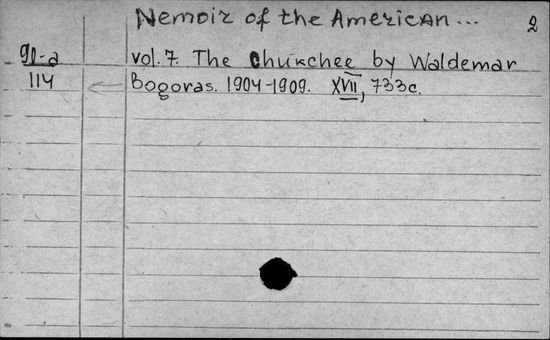 Nemoir of the American... 2
90-a vol. 7. The Chukchee by Waldemar
114 Bogoras. 1904-1909. XVII, 733c.